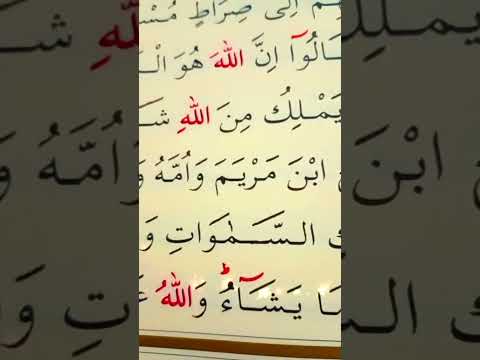 ـهِمْ اِلٰى صِرَاطٍ مُسْـ
ـالُٓوا اِنَّ اللّٰهَ هُوَ الْـ
يَمْلِكُ مِنَ اللّٰهِ شَـ
ابْنَ مَرْيَمَ وَاُمَّهُ وَ
ـكُ السَّمٰوَاتِ وَ
ـا يَشَٓاءُ وَاللّٰهُ عَـ